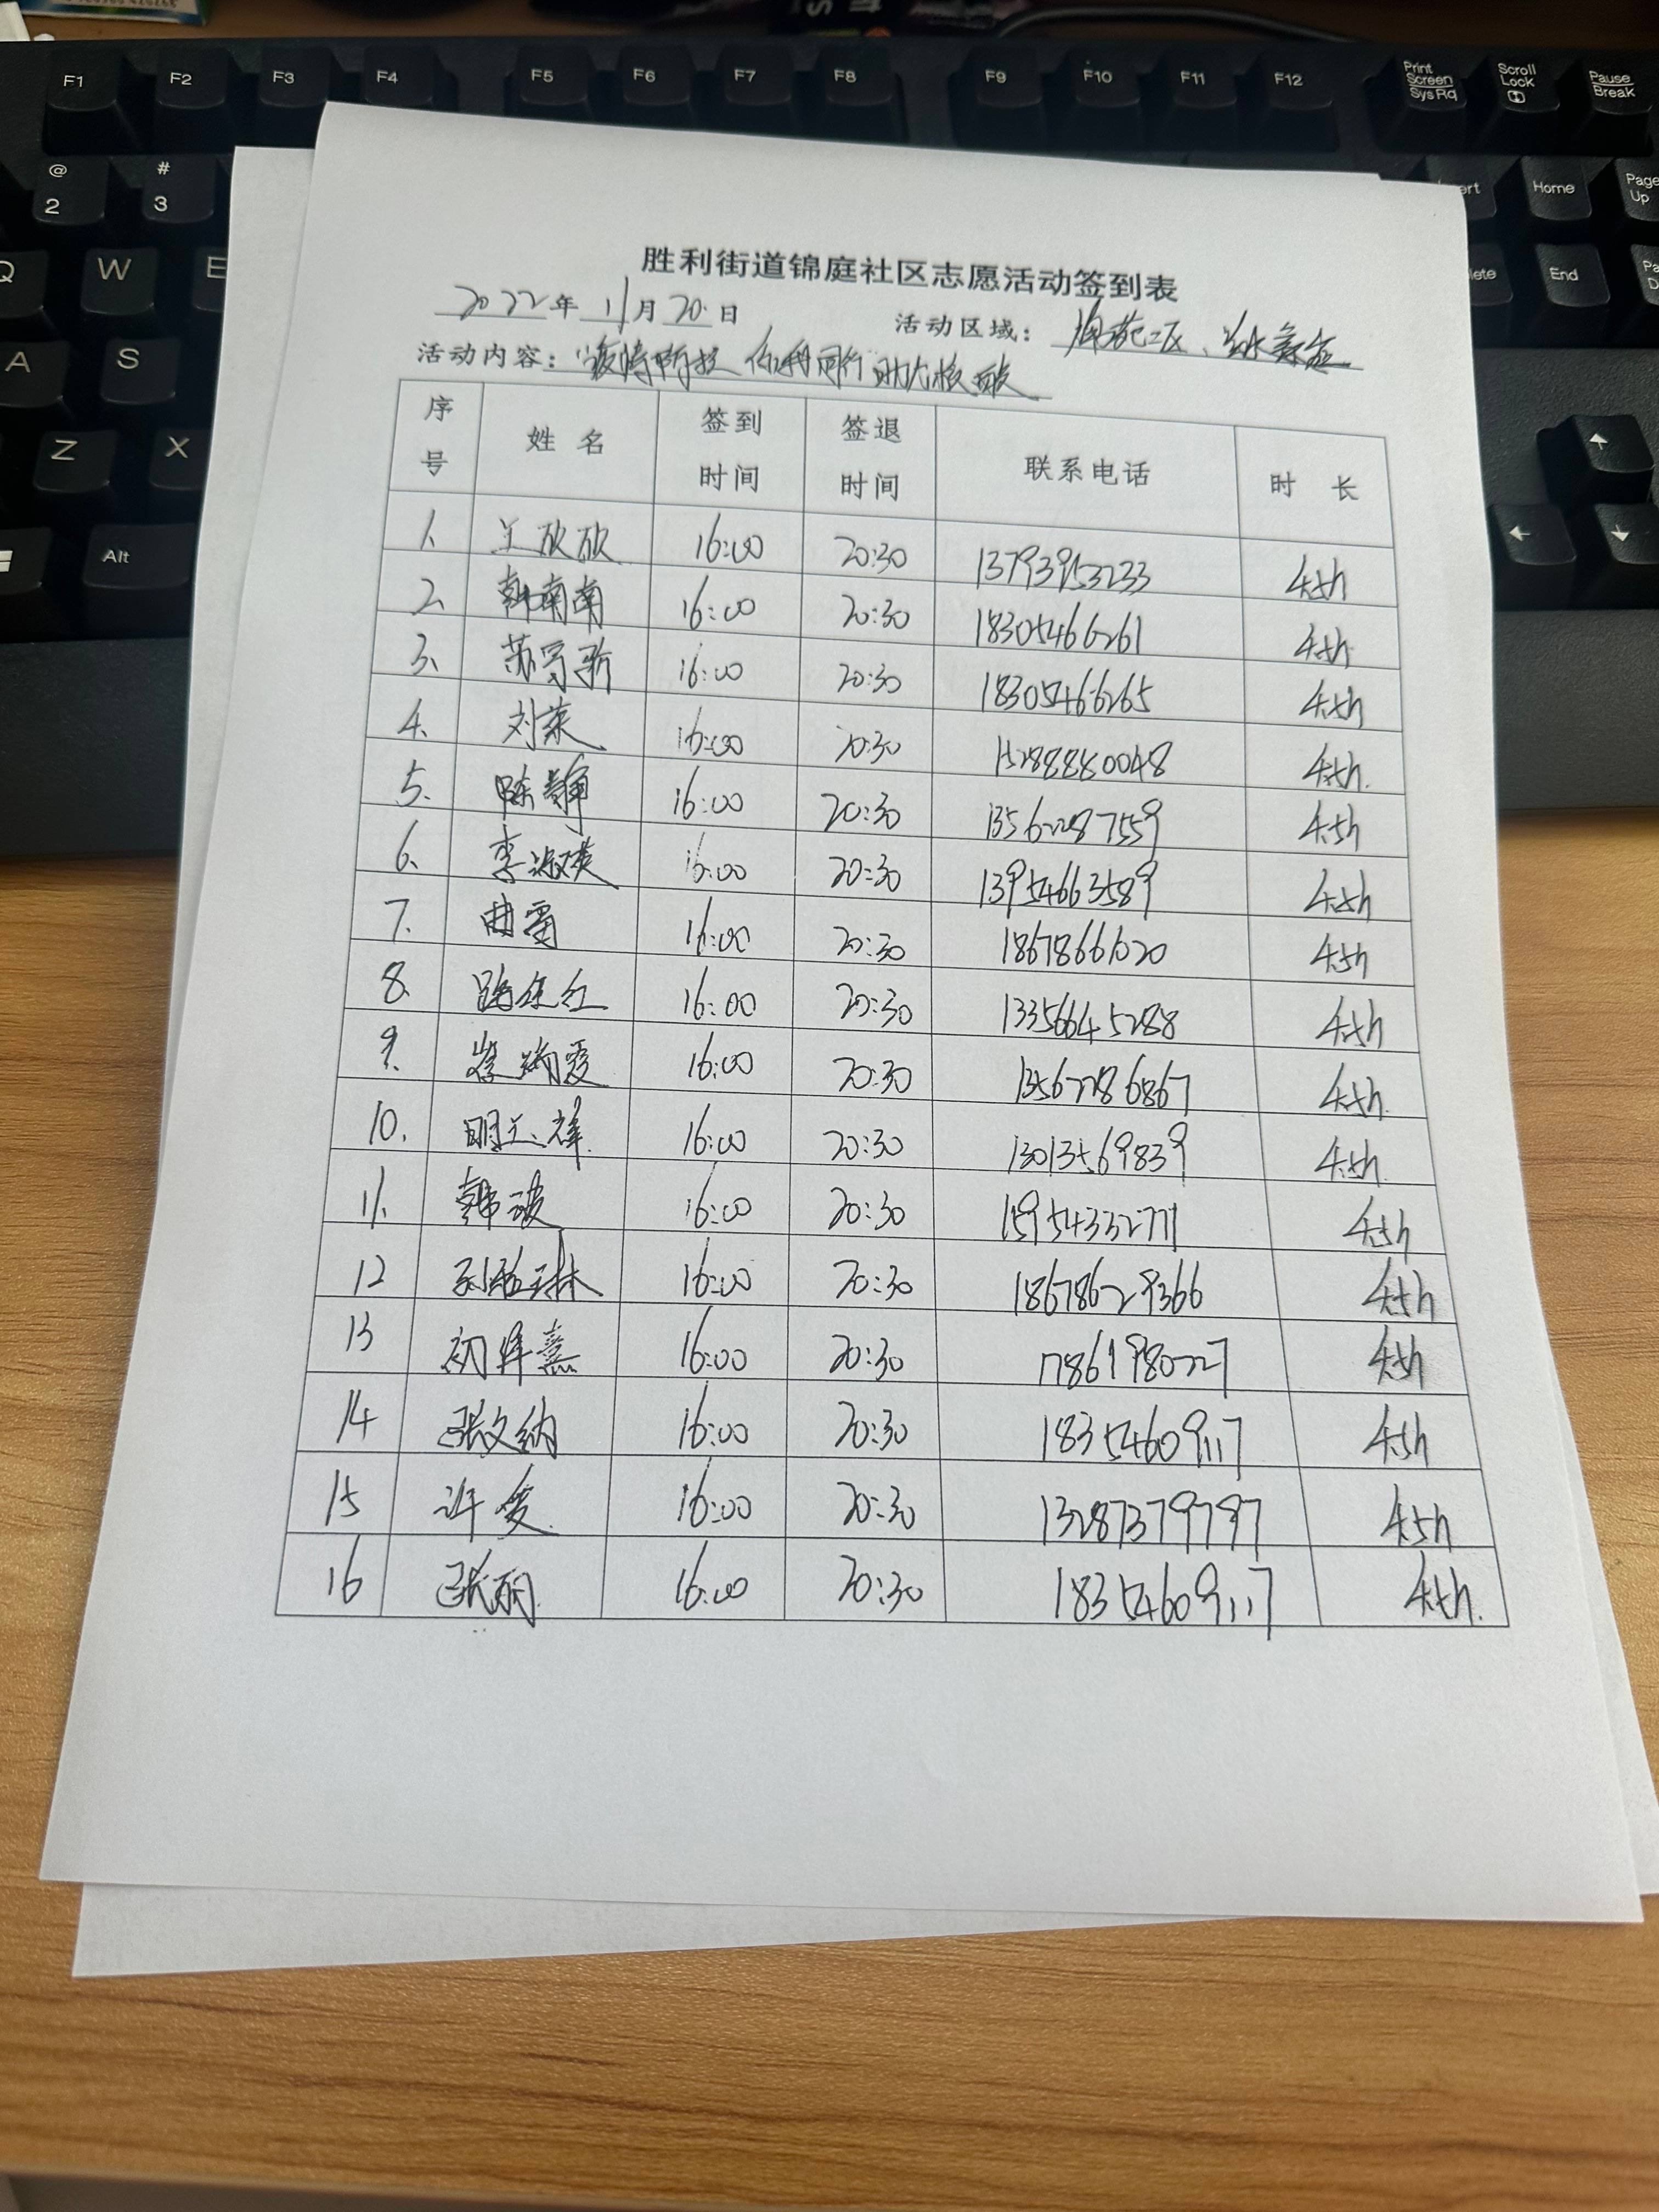 F1 F2 F3 F4 F5 F6 F7 F8 F9 F10 F11 F12 Print Screen SysRq Scroll Lock Pause Break
@ 2 # 3 Home Page Up
Q W E End
A S
Z X
Alt
胜利街道锦庭社区志愿活动签到表
2022年 11月 20日 活动区域: 二区、
活动内容: 疫情防控 你我同行 助力核酸
序号 姓名 签到时间 签退时间 联系电话 时长
1. 王欣欣 16:00 20:30 13793953233 4.5h
2. 韩南南 16:00 20:30 18305466261 4.5h
3. 苏 新 16:00 20:30 18305466265 4.5h
4. 刘莱 16:00 20:30 15288880048 4.5h.
5. 陈静 16:00 20:30 13562287559 4.5h
6. 李淑英 16:00 20:30 13954663589 4.5h
7. 曲雷 16:00 20:30 18678661020 4.5h
8. 路 红 16:00 20:30 13356645288 4.5h
9. 崔瑞霞 16:00 20:30 13562286867 4.5h.
10. 明 祥. 16:00 20:30 13013569839 4.5h.
11. 韩波 16:00 20:30 15954332771 4.5h
12 刘 琳 16:00 20:30 18678629366 4.5h
13 初 熹 16:00 20:30 17861980227 4.5h
14 张文纳 16:00 20:30 18354609117 4.5h
15 许雯. 16:00 20:30 13287379797 4.5h
16 张丽. 16:00 20:30 18354609117 4.5h.